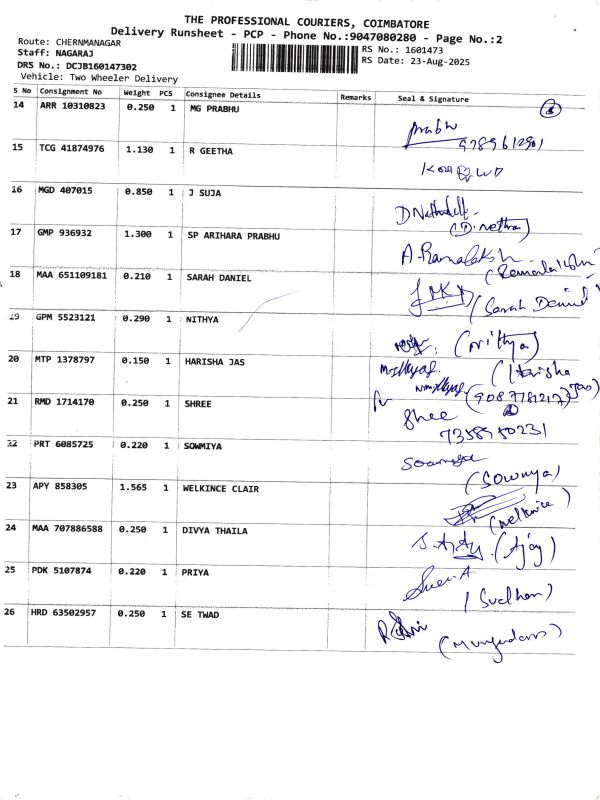 THE PROFESSIONAL COURIERS, COIMBATORE
Delivery Runsheet - PCP - Phone No.:9047080280 - Page No.:2
Route: CHERNMANAGAR
Staff: NAGARAJ
DRS No.: DCJB160147302
Vehicle: Two Wheeler Delivery
RS No.: 1601473
RS Date: 23-Aug-2025
S No Consignment No Weight PCS Consignee Details Remarks Seal & Signature
14 ARR 10310823 0.250 1 MG PRABHU
Prabhu
15 TCG 41874976 1.130 1 R GEETHA
16 MGD 407015 0.850 1 J SUJA
(D. nethra)
17 GMP 936932 1.300 1 SP ARIHARA PRABHU
18 MAA 651109181 0.210 1 SARAH DANIEL
(Sarah Daniel
19 GPM 5523121 0.290 1 NITHYA
(Nithya)
20 MTP 1378797 0.150 1 HARISHA JAS
(Harisha
21 RMD 1714170 0.250 1 SHREE
Shree
7358950231
22 PRT 6085725 0.220 1 SOWMIYA
(Sowmya)
23 APY 858305 1.565 1 WELKINCE CLAIR
(Welkince)
24 MAA 707886588 0.250 1 DIVYA THAILA
(Ajay)
25 PDK 5107874 0.220 1 PRIYA
26 HRD 63502957 0.250 1 SE TWAD